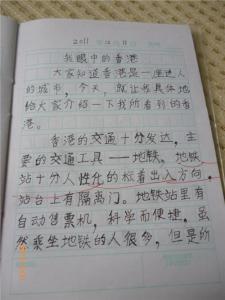 2011
我眼中的香港
大家知道香港是一座迷人
的城市，今天，就让我具体地
给大家介绍一下我所看到的香
港。
香港的交通十分发达，主
要的交通工具——地铁。地铁
站十分人性化的标着出入方向，
站台上有隔离门。地铁站里有
自动售票机，科学而便捷。虽
然乘坐地铁的人很多，但是所